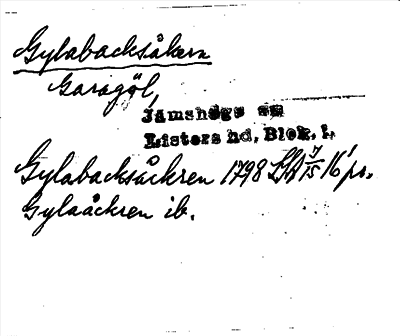 Gylabacksåkern
Garagöl,
Jämshögs sn
Listers hd, Blek. l.
Gylabacksåckren 1798 LSA 7/15 16 ps.
Gylaåckren ib.